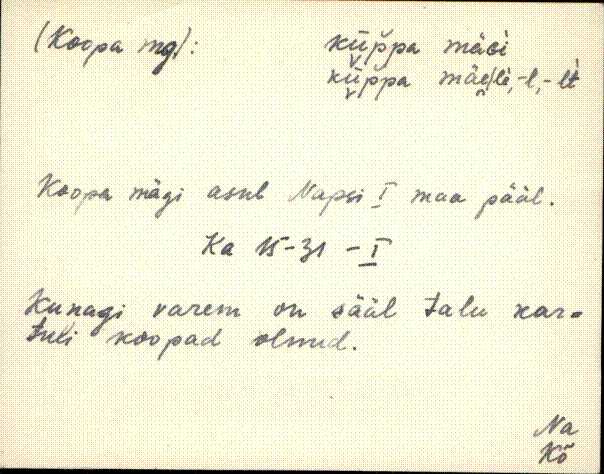 (Koopa mg): kūp̆pa mäɢi
kūp̆pa mäe/lè, -l, -lt
Koopa mägi asub Napsi I maa pääl.
Ka 15-31 - I
Kunagi varem on sääl talu kar-
tuli koopad olnud.
Na
Kõ